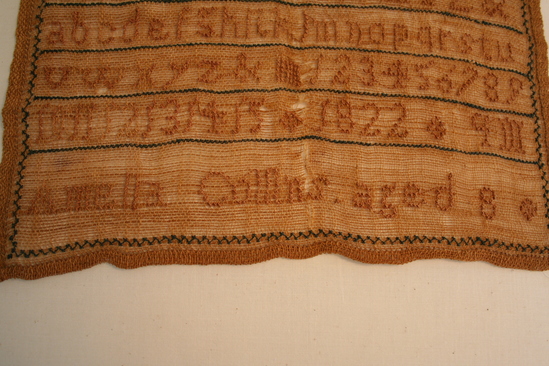 abcdefghiklmnopqrstu
vwxyz& 123456789
10 11 12 13 14 15 * 1822 *
Amelia Collins aged 8